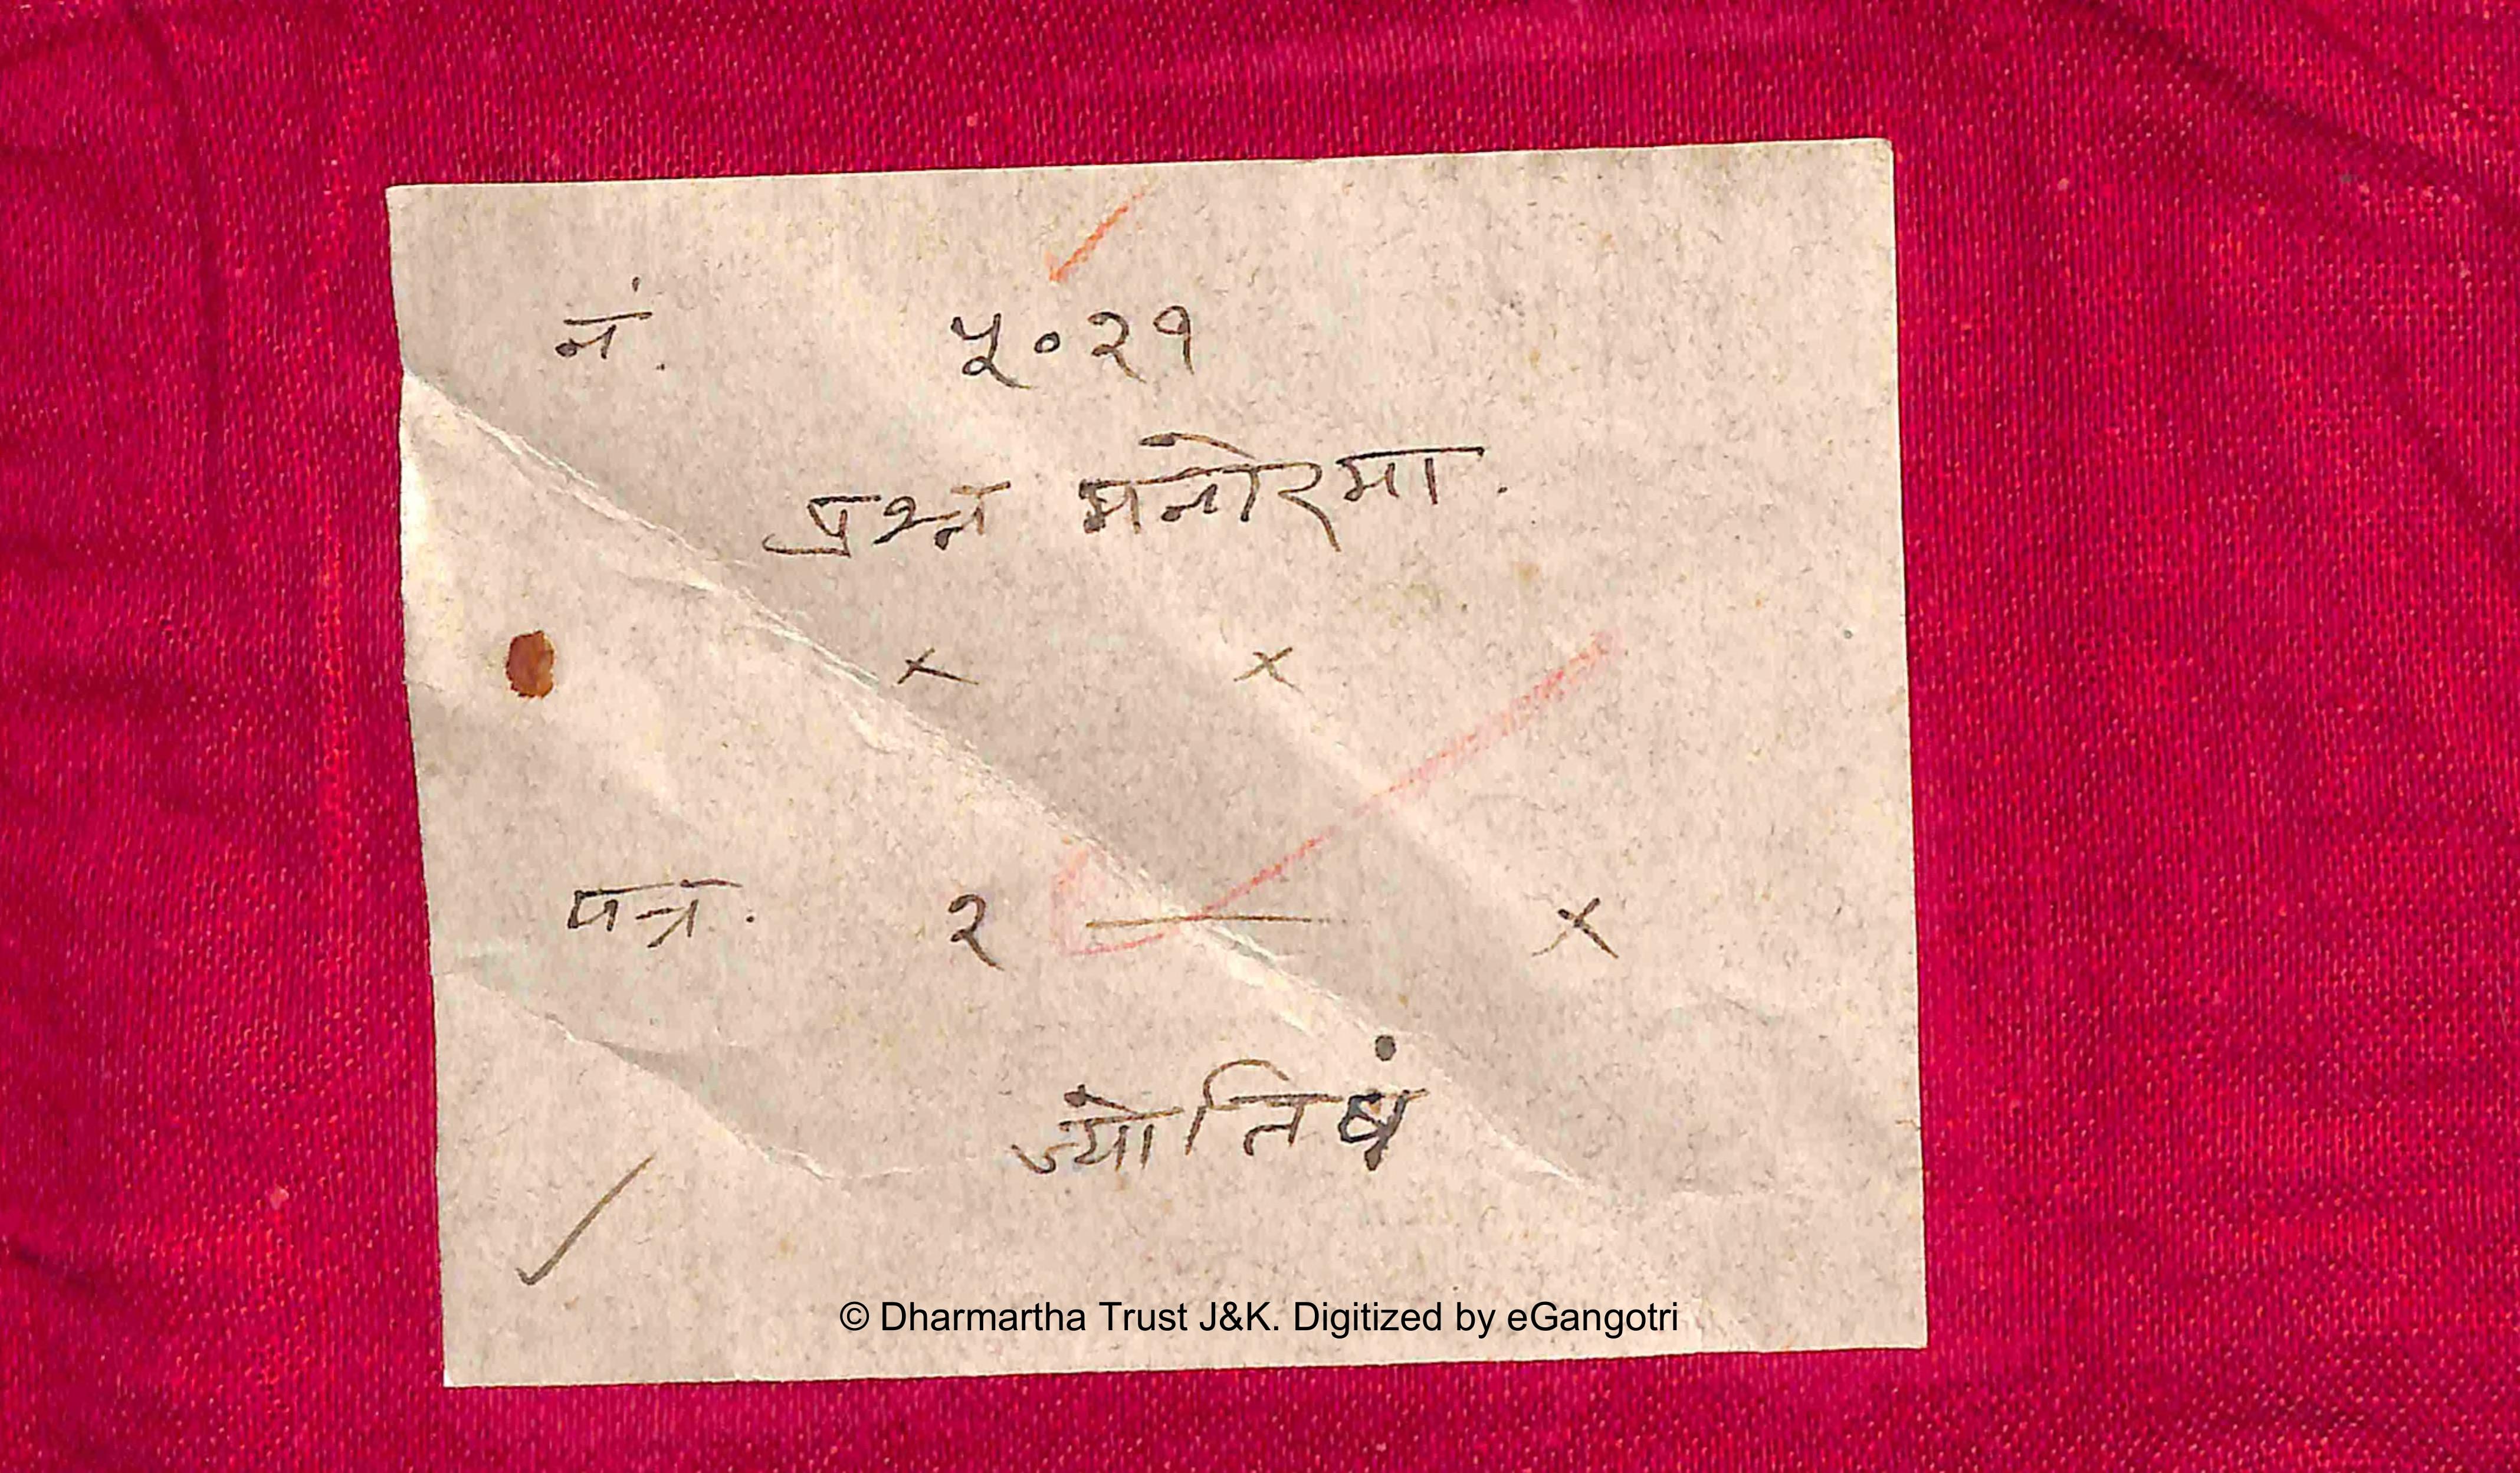 नं. ५०२१
प्रश्न मनोरमा.
× ×
पत्र. २ — ×
ज्योतिषं
© Dharmartha Trust J&K. Digitized by eGangotri